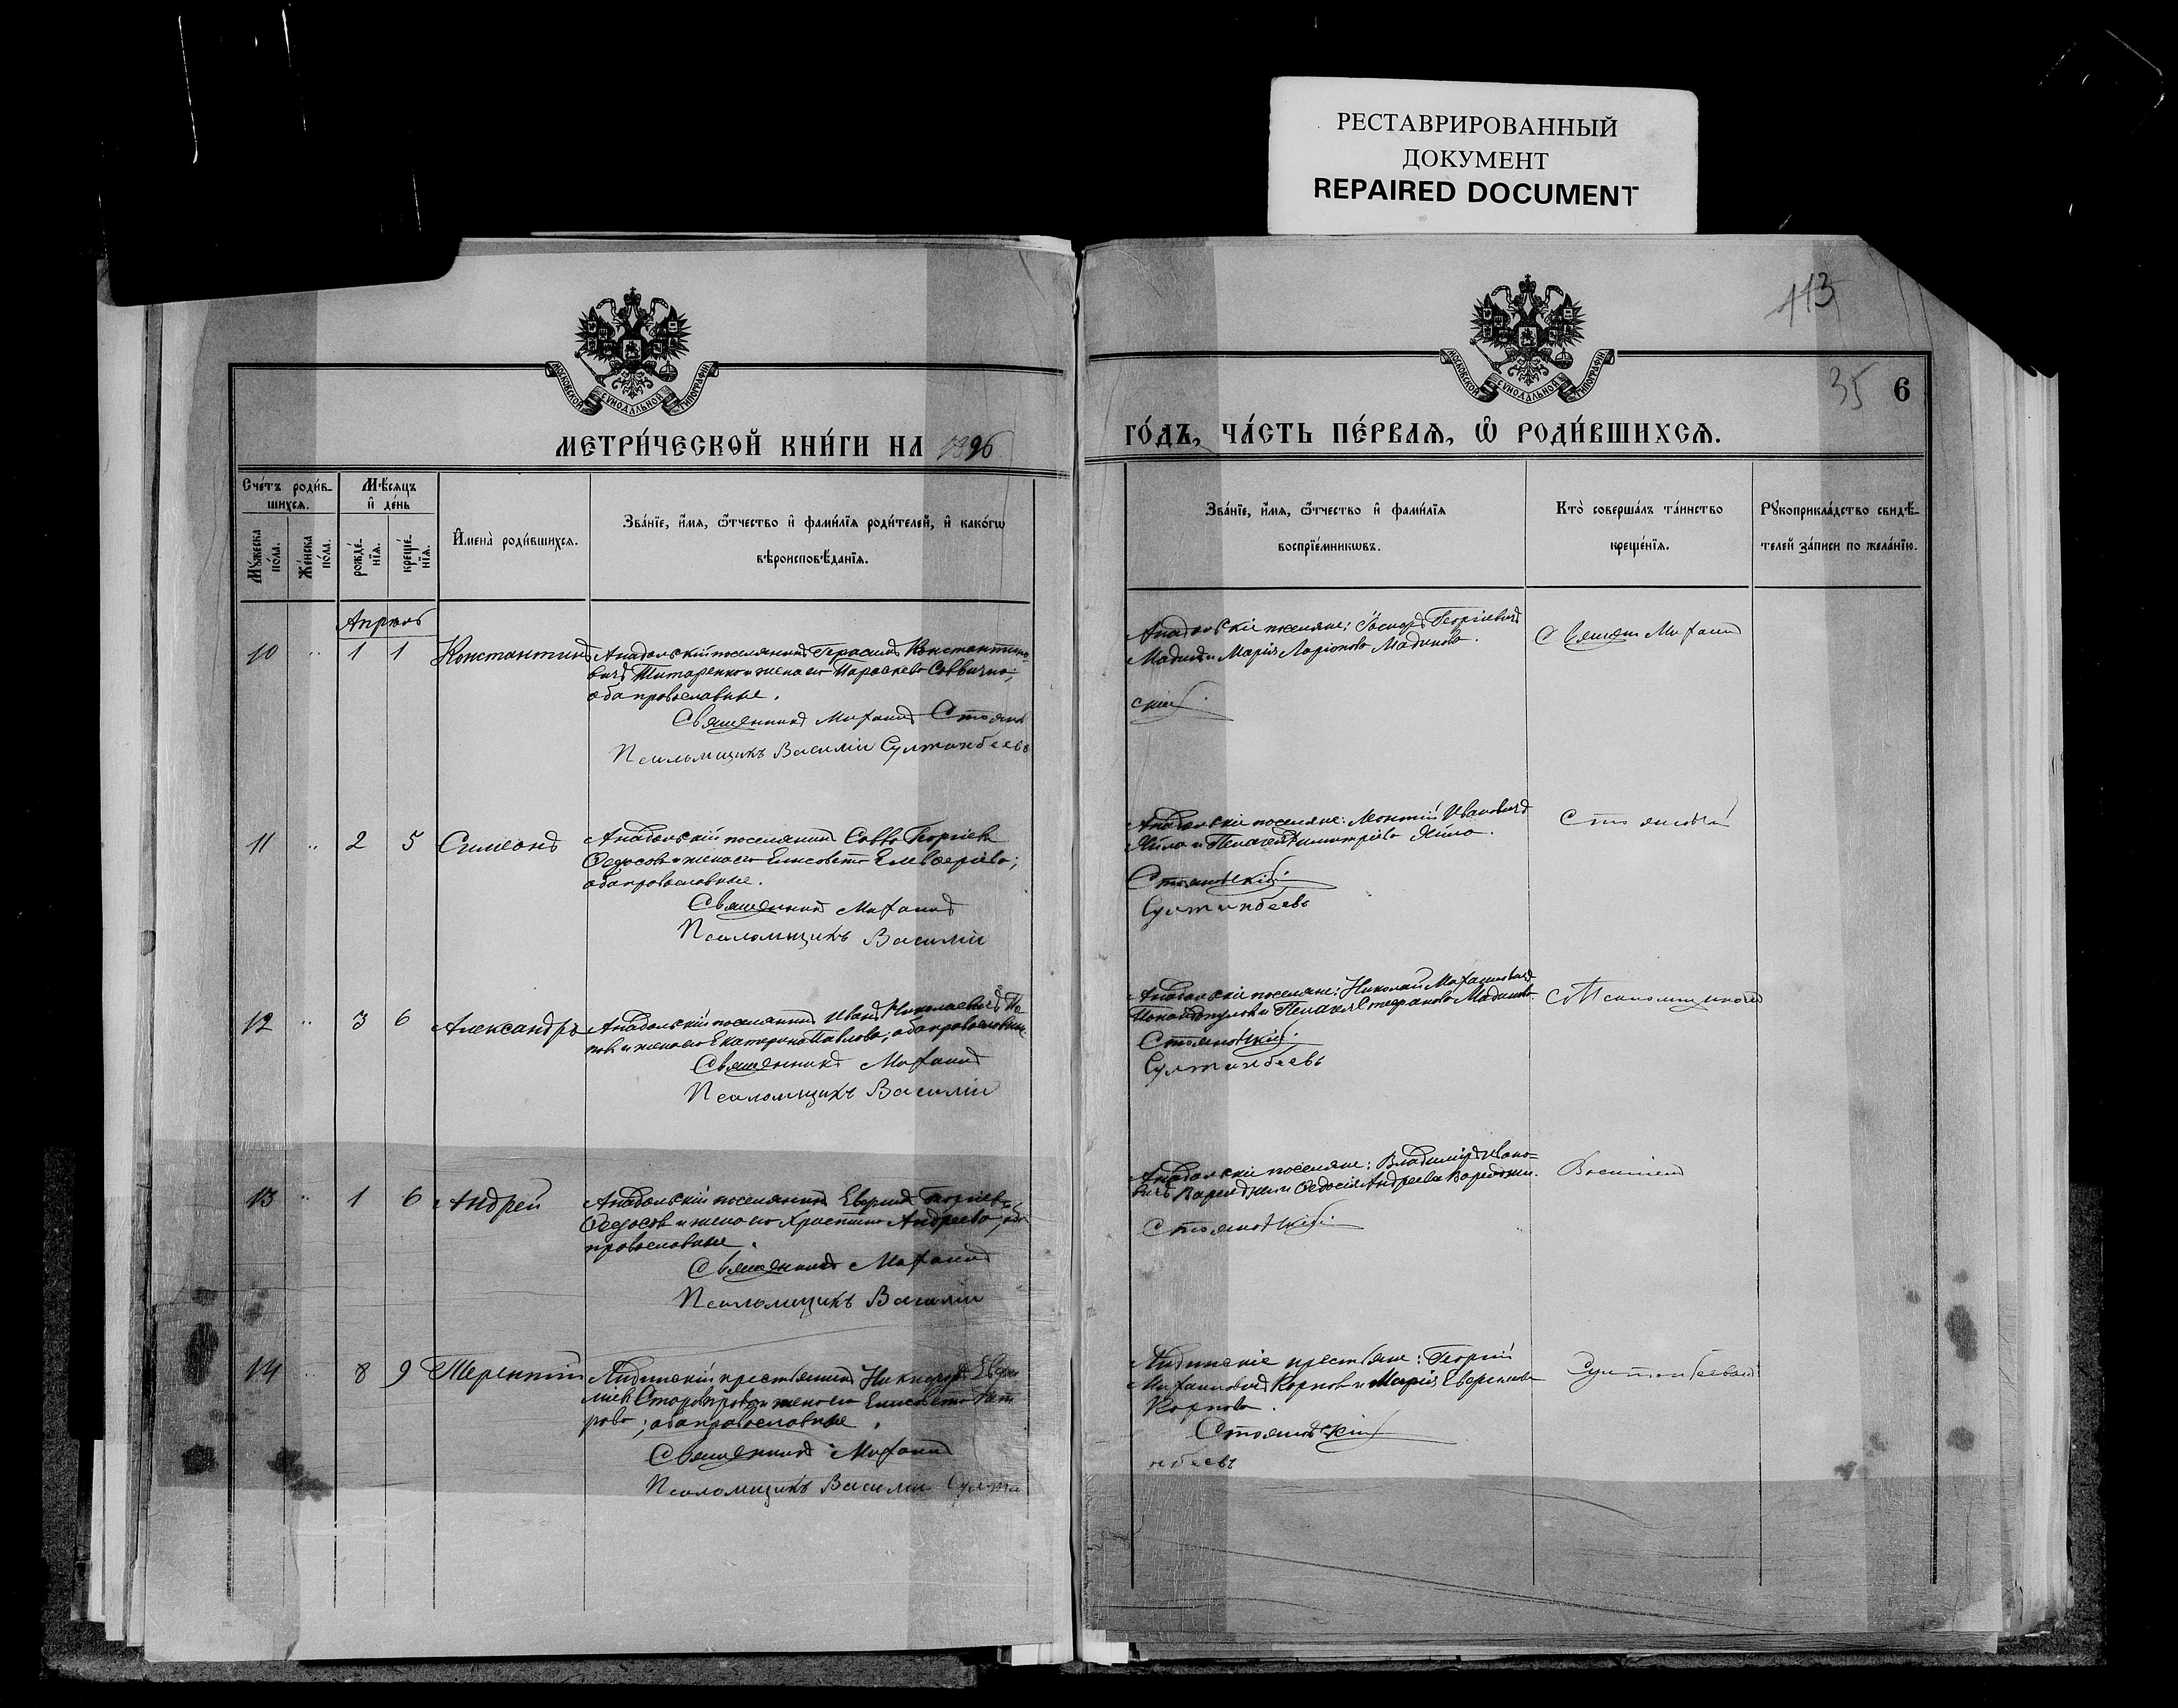 РЕСТАВРИРОВАННЫЙ
ДОКУМЕНТ
REPAIRED DOCUMENT
113
МОСКОВСКОЙ СУНОДАЛЬНОЙ ТИПОГРАФІИ
МОСКОВСКОЙ СУНОДАЛЬНОЙ ТИПОГРАФІИ
35 6
МЕТРИ́ЧЕСКОЙ КНИ́ГИ НА 1896
ГО́ДЪ, ЧА́СТЬ ПЕ́РВАЯ, Ѡ РОДИ́ВШИХСЯ.
Сче́тъ роди́в-
шихся.
Мѣ́сяцъ
и де́нь
Мꙋ́жеска
по́ла.
Же́нска
по́ла.
рожде́-
нїя.
креще́-
нїя.
Имена̀ роди́вшихся.
Зва́нїе, и́мя, ѻ́тчество и фами́лїя роди́телей, и како́гѡ
вѣроисповѣ́данїя.
Зва́нїе, и́мя, ѻ́тчество и фами́лїя
воспрїе́мникѡвъ.
Кто̀ соверша́лъ та́инство
креще́нїя.
Рꙋкоприкла́дство свидѣ́-
телей за́писи по жела́нїю.
Апрѣль
10 " 1 1 Константинъ Анадольскій поселянинъ Герасимъ Константино-
вичъ Титаренко и жена его Параскева Саввична;
оба православные.
Священникъ Михаилъ Стоянов
Псаломщикъ Василій Султанбеевъ
Анадольскіе поселяне: Георгіевичъ
Мадинъ и Марія Ларіонова Мадинова.
скій
Священ Михаилъ
11 " 2 5 Симеонъ Анадольскій поселянинъ Савва Георгіевъ
Федосовъ и жена его Елисавета Елевферіева;
оба православные.
Священникъ Михаилъ
Псаломщикъ Василій
Анадольскіе поселяне: Ивановичъ
и Пелагея Димитріева
Стояновскій
Султанбеевъ
Стояновскій
12 " 3 6 Александръ Анадольскій поселянинъ Иванъ Николаевичъ По-
повъ и жена его Екатерина Павлова; оба православные.
Священникъ Михаилъ
Псаломщикъ Василій
Анадольскіе поселяне: Николай Михайловичъ
и Пелагея Стефанова Мадинова.
Стояновскій
Султанбеевъ
съ Псаломщикомъ
13 " 1 6 Андрей Анадольскій поселянинъ Георгіев
Федосовъ и жена его Христина Андреева; оба
православные.
Священникъ Михаилъ
Псаломщикъ Василій
Анадольскіе поселяне: Владиміръ Ивано-
вичъ и Федосія Андреева
Стояновскій
Василіем
14 " 8 9 Терентій крестьянинъ Никифоръ
и жена его Елисавета
рова; оба православные.
Священникъ Михаилъ
Псаломщикъ Василій Султа
крестьяне: Георгій
Михайловичъ Карповъ и Марія
Карпова.
Стояновскій
нбеевъ
Султанбеевымъ